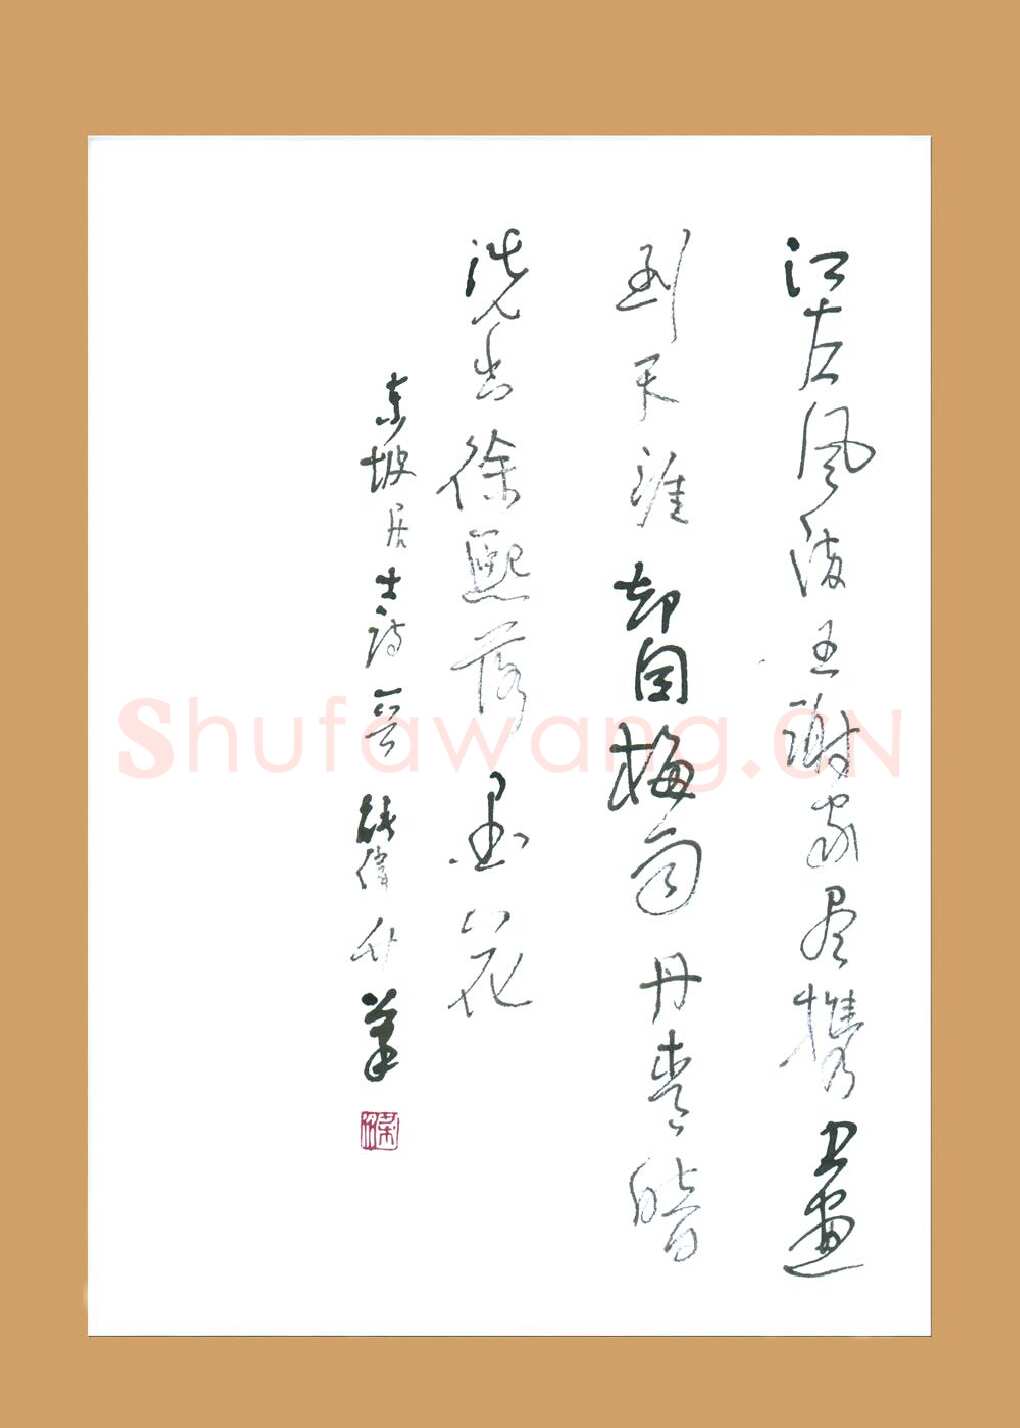 江左风流王谢家尽携书画
到天涯却因梅雨丹青暗
洗出徐熙落墨花
东坡居士诗一首
Shufawang.CN